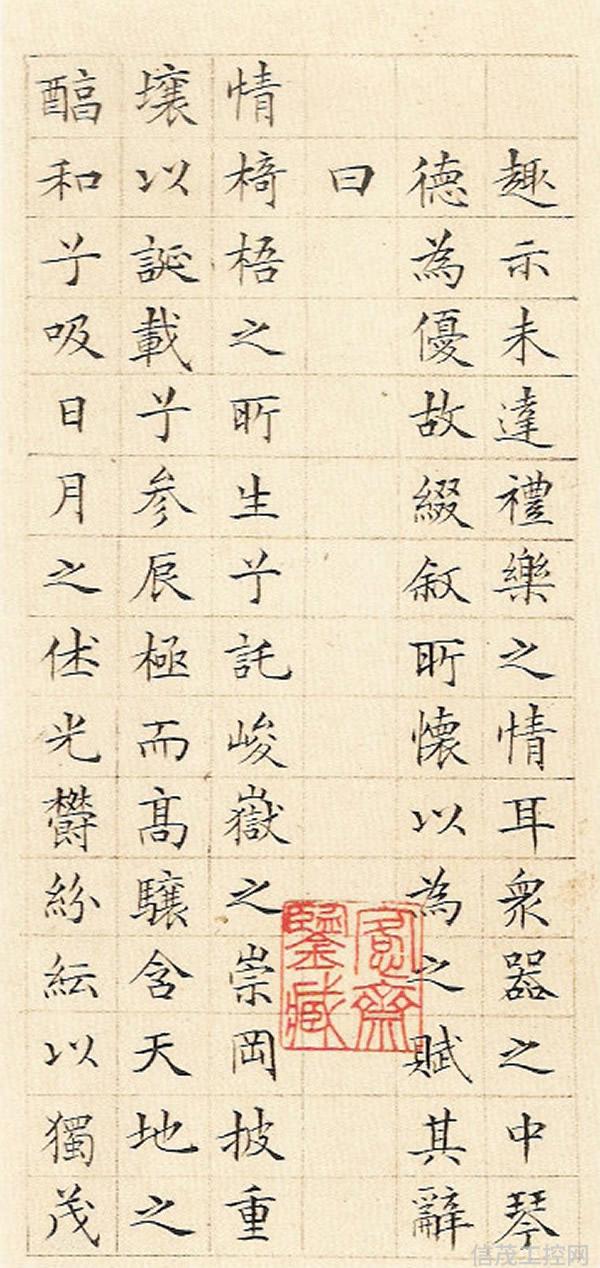 趣示未達禮樂之情耳衆器之中琴
德為優故綴叙所懷以為之賦其辭
曰
情椅梧之所生兮託峻嶽之崇岡披重
壤以誕載兮参辰極而髙驤含天地之
醕和兮吸日月之休光鬱紛紜以獨茂
愙齋鑒藏
信茂工控网